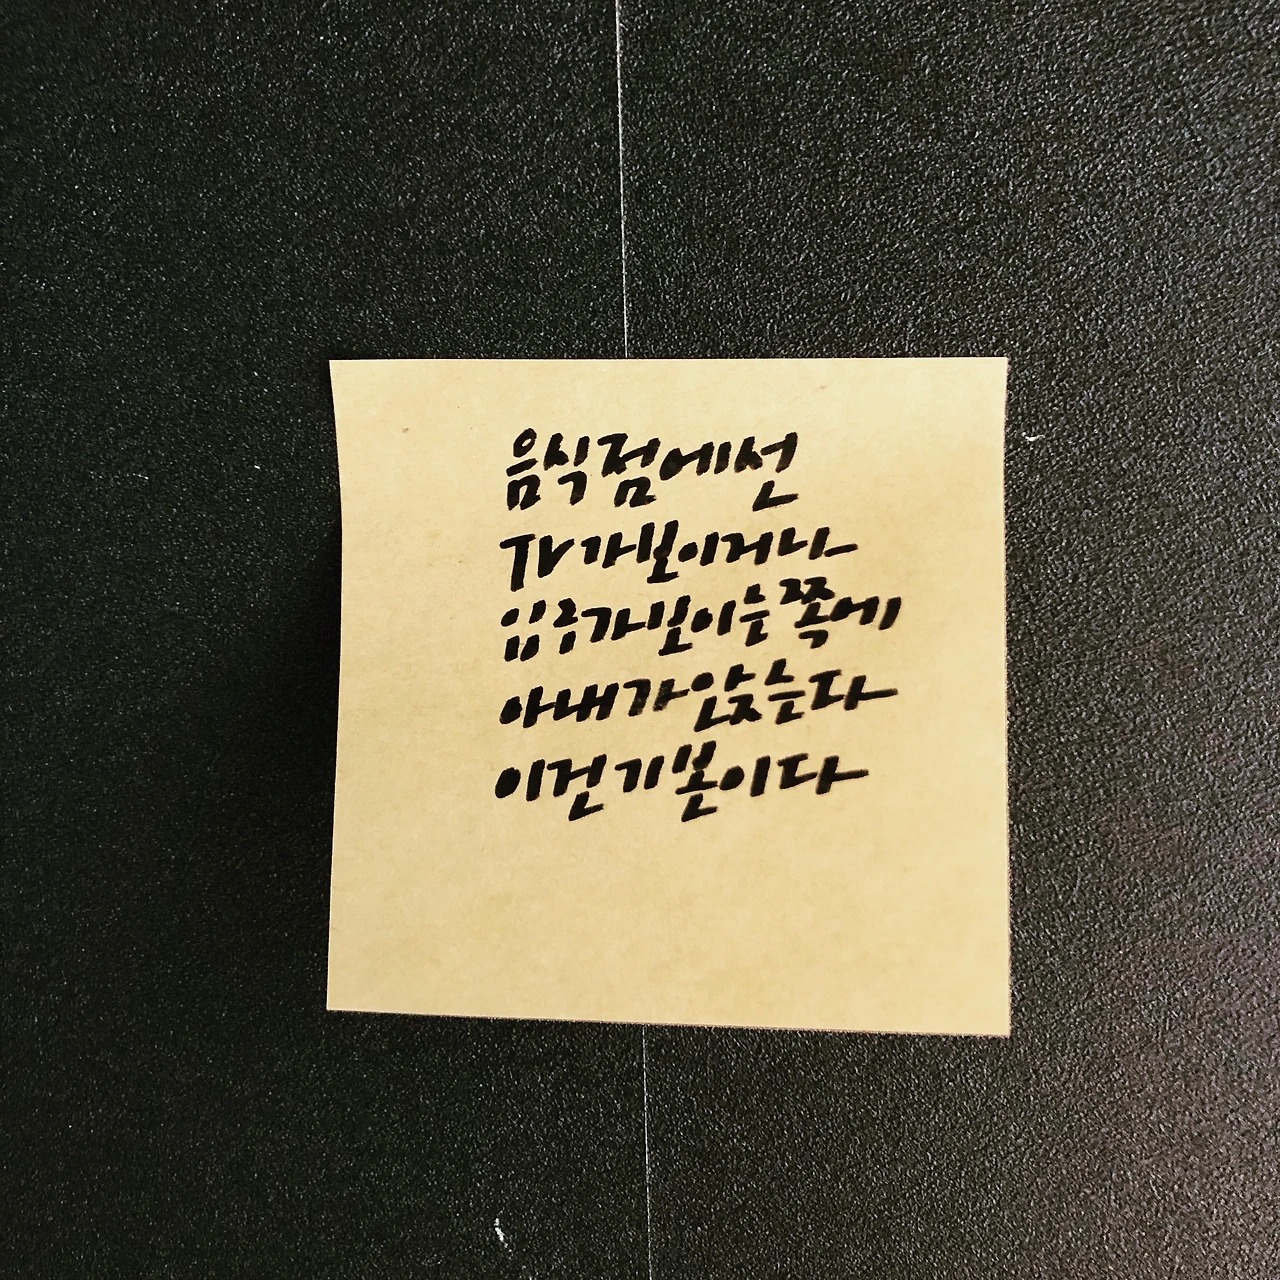 음식점에선
TV가 보이거나
입구가 보이는 쪽에
아내가 앉는다
이건 기본이다